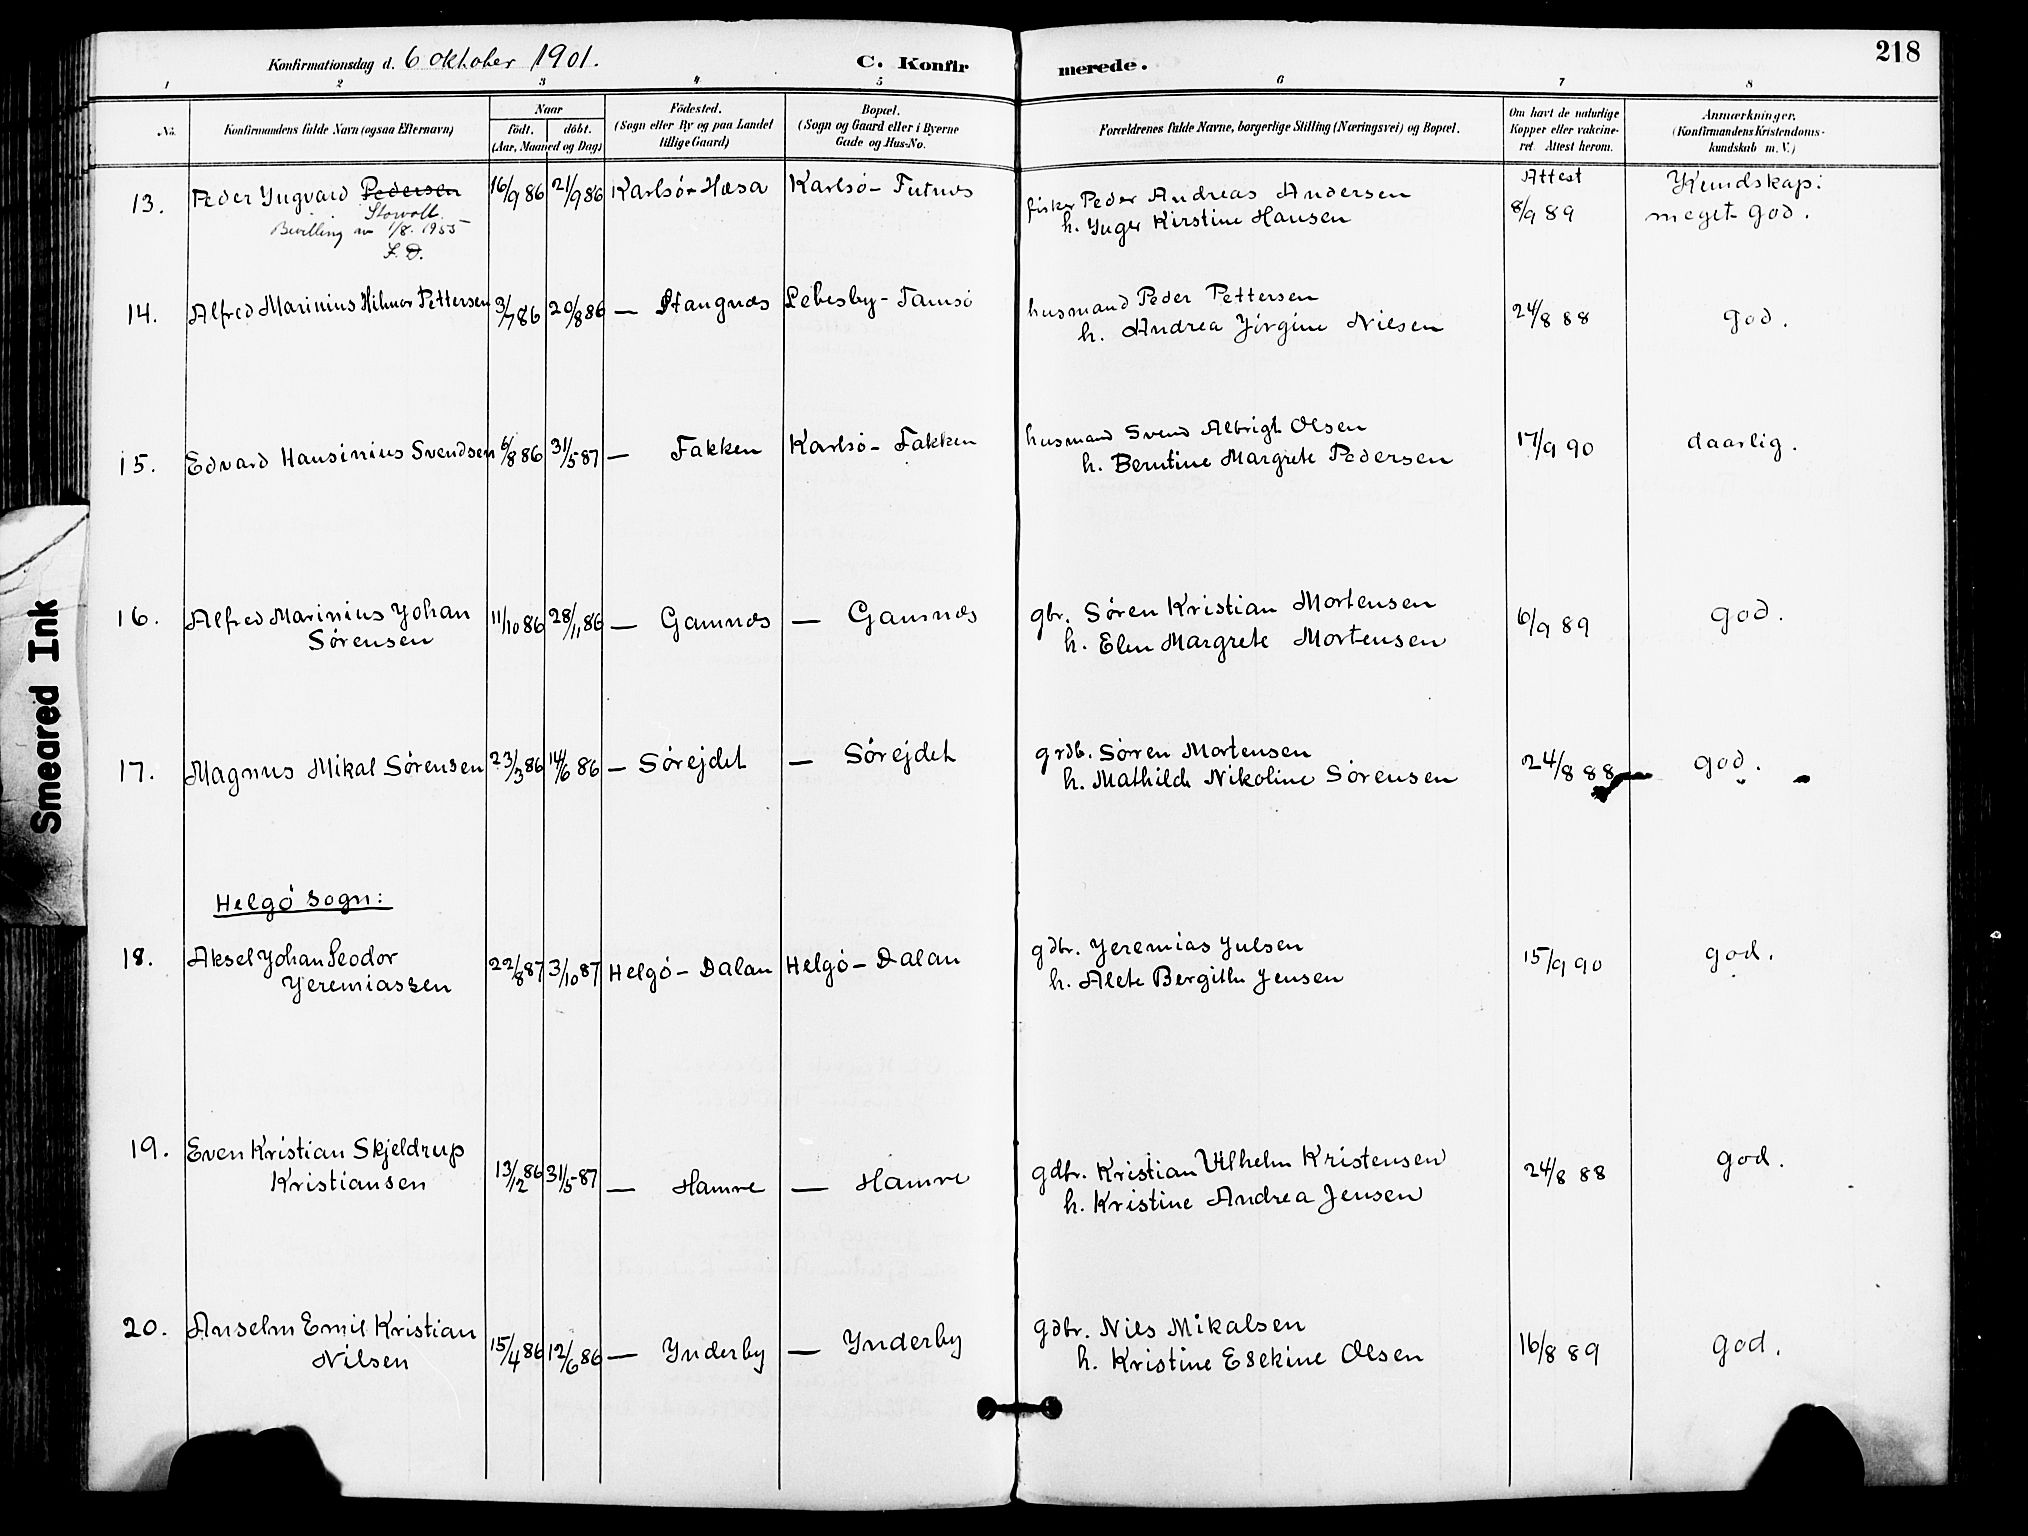 218
Konfirmationsdag d. 6 oktober 1901.
C. Konfirmerede.
1 2 3 4 5 6 7 8
No.
Konfirmandens fulde Navn (ogsaa Efternavn)
Naar
födt. döbt.
(Aar, Maaned og Dag)
Födested.
(Sogn eller By og paa Landet
tillige Gaard)
Bopæl.
(Sogn og Gaard eller i Byerne
Gade og Hus-No.
Forældrenes fulde Navne, borgerlige Stilling (Næringsvei) og Bopæl.
Om havt de naturlige
Kopper eller vakcine-
ret. Attest herom.
Anmærkninger.
(Konfirmandens Kristendoms-
kundskab m. V.)
13. Peder Yngvard Pedersen 16/9 86 21/9 86 Karlsö - Hæsa Karlsö - Futnæs fisker Peder Andreas Andersen Attest Kundskap:
Storvoll h. Inger Kirstine Hansen 8/9 89 meget god.
Bevilling av 1/8. 1955
14. Alfred Marinius Hilmar Pettersen 3/7 86 20/8 86 — Stangnæs Lebesby - Tamsö husmand Peder Pettersen 24/8 88 god.
h. Andrea Jörgine Nilsen
15. Edvard Hansinius Svendsen 6/8 86 31/5 87 — Fakken Karlsö - Fakken husmand Svend Albrigt Olsen 17/9 90 daarlig.
h. Berntine Margrete Pedersen
16. Alfred Marinius Johan 11/10 86 28/11 86 — Gamnæs — Gamnæs gbr. Sören Kristian Mortensen 6/9 89 god.
Sörensen h. Elen Margrete Mortensen
17. Magnus Mikal Sörensen 23/3 86 14/6 86 — Sörejdet — Sörejdet grdb. Sören Mortensen 24/8 88 god.
h. Mathilde Nikoline Sörensen
Helgö sogn:
18. Aksel Johan Seodor 22/8 87 3/10 87 Helgö - Dalan Helgö - Dalan gdbr. Jeremias Julsen 15/9 90 god.
Jeremiassen h. Alete Bergitte Jensen
19. Even Kristian Skjeldrup 13/12 86 31/5 87 — Hamre — Hamre gdbr. Kristian Vilhelm Kristensen 24/8 88 god.
Kristiansen h. Kristine Andrea Jensen
20. Anselm Emil Kristian 15/4 86 12/6 86 — Ynderby — Ynderby gdbr. Nils Mikalsen 16/8 89 god.
Nilsen h. Kristine Esekine Olsen
Smeared Ink